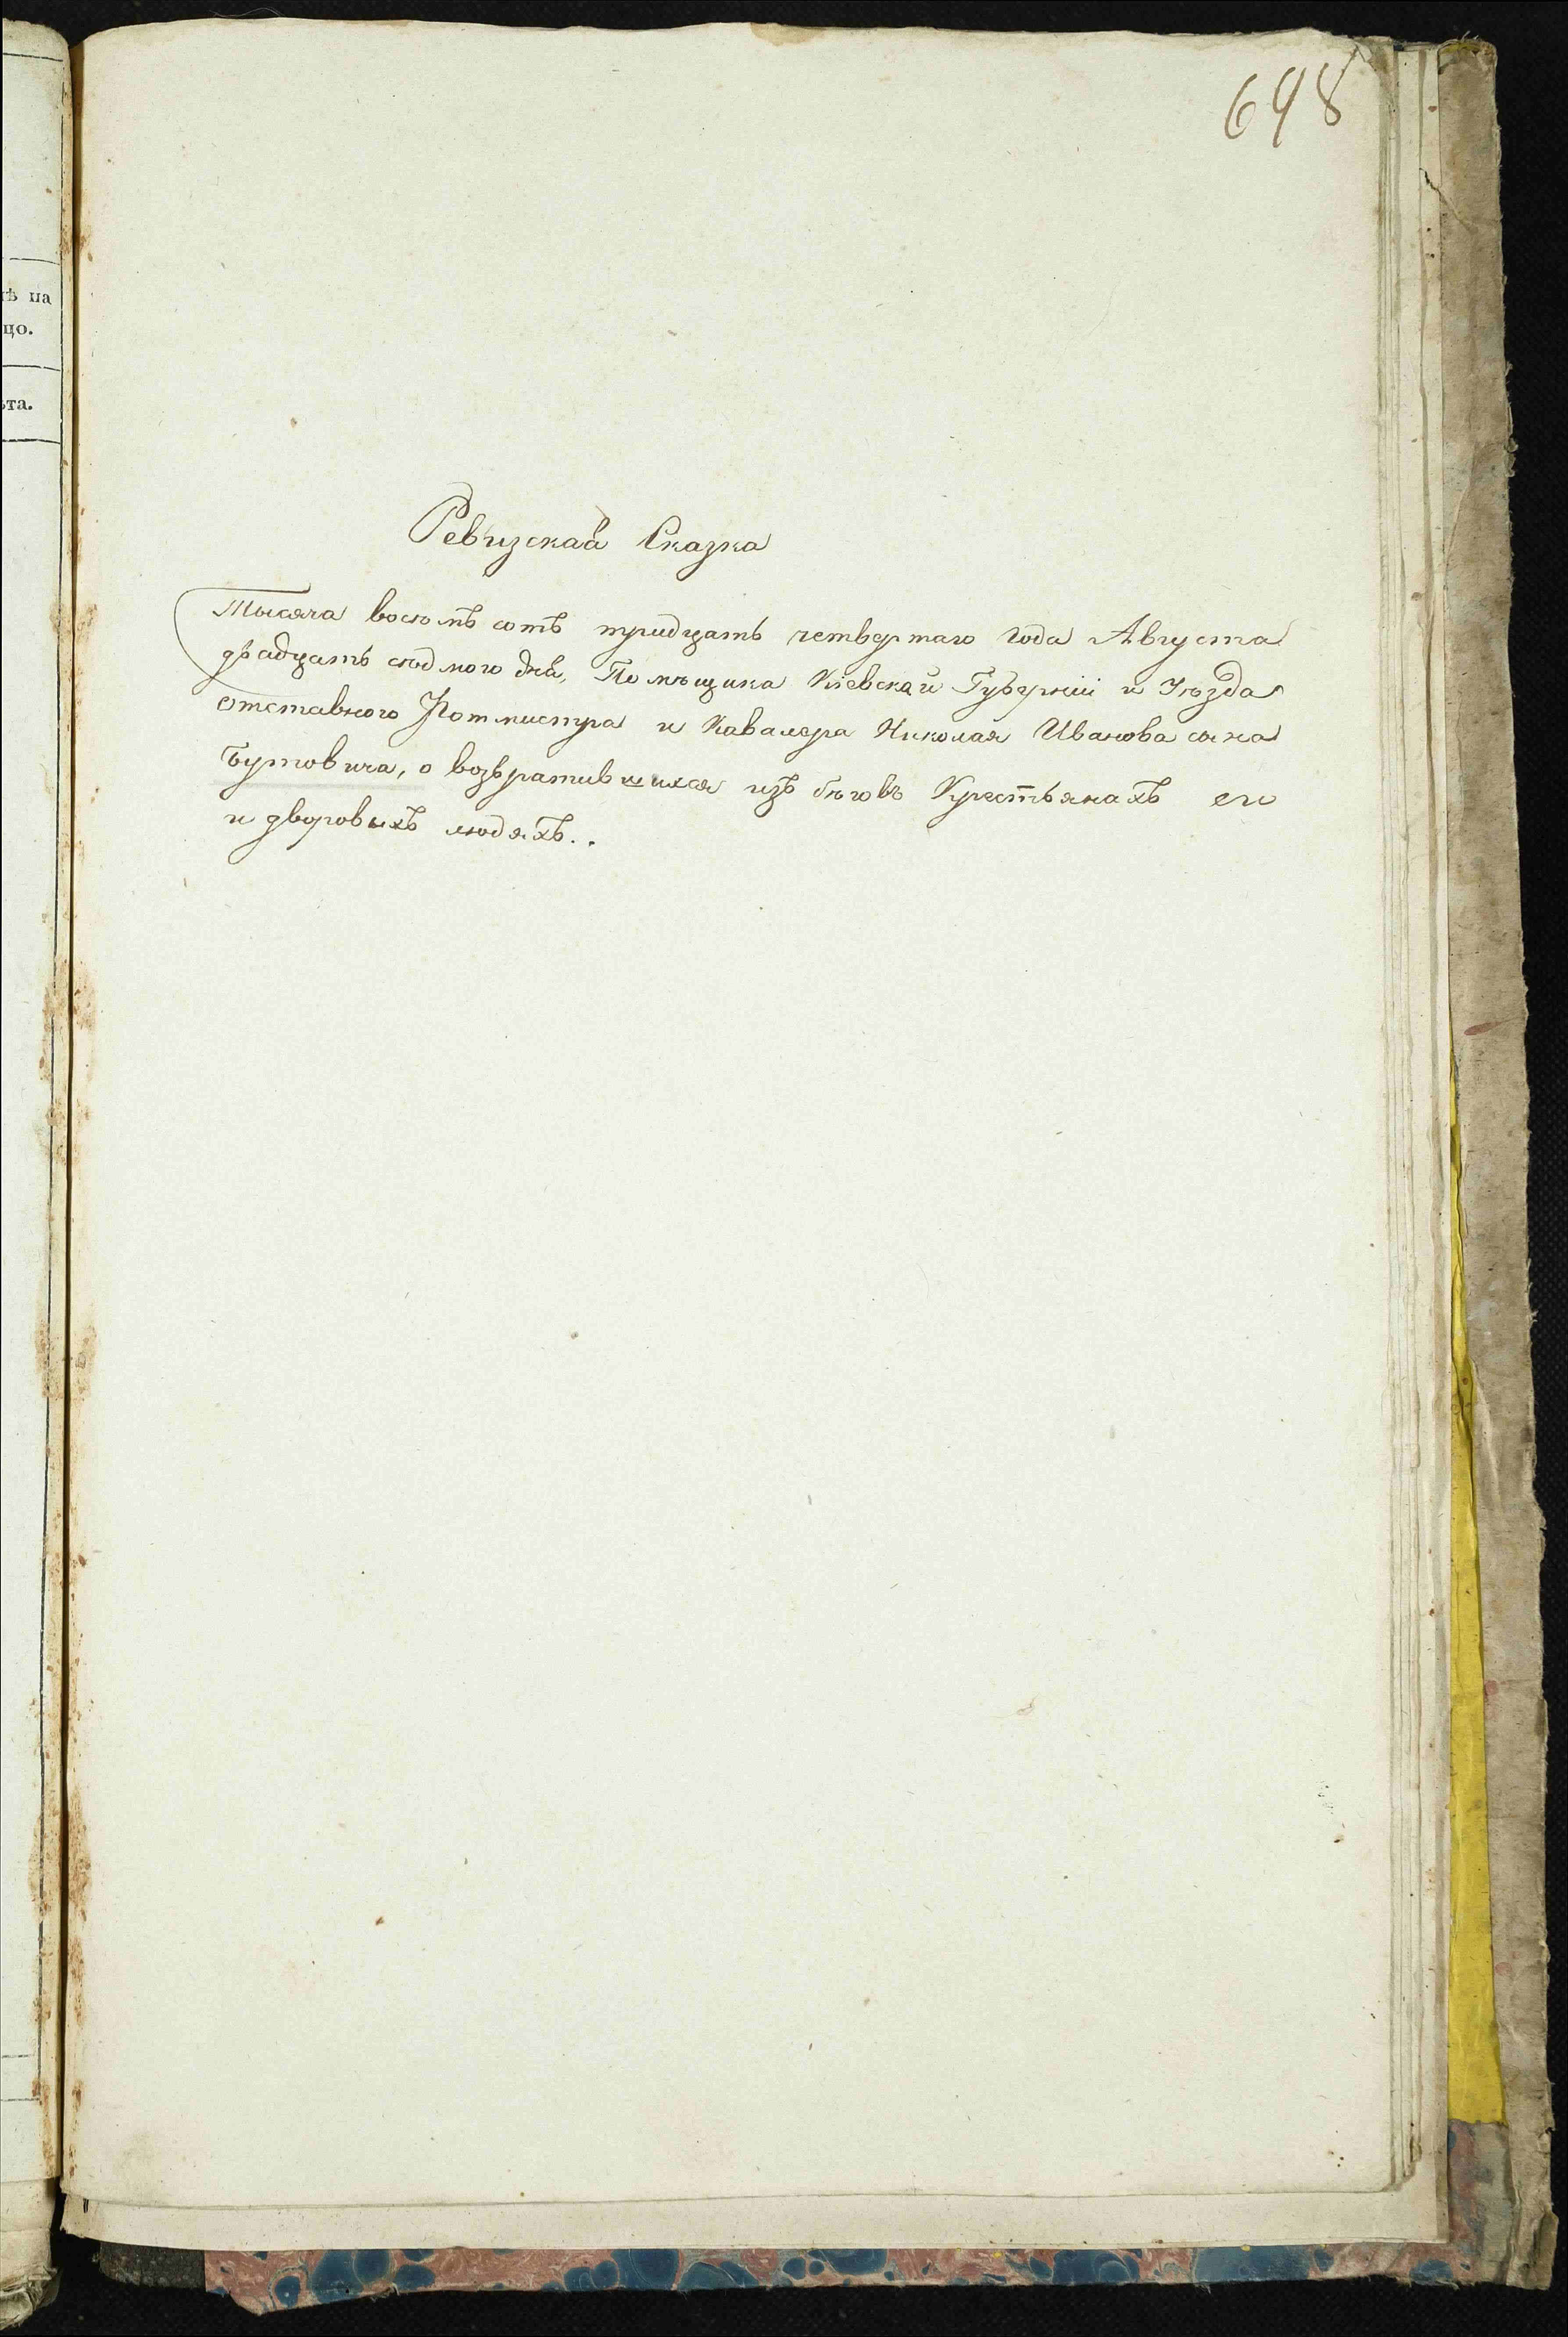 698
ѣ на
цо.
ѣта.
Ревизская Сказка
Тысяча восемъ сотъ тридцать четвертаго года Августа
двадцать седмого дня, Помѣщика Кіевской Губерніи и Уѣзда
отставного Ротмистра и Кавалера Николая Иванова сына
Бутовича, о возвратившихся изъ бѣговъ Крестьянахъ его
и дворовыхъ людяхъ..